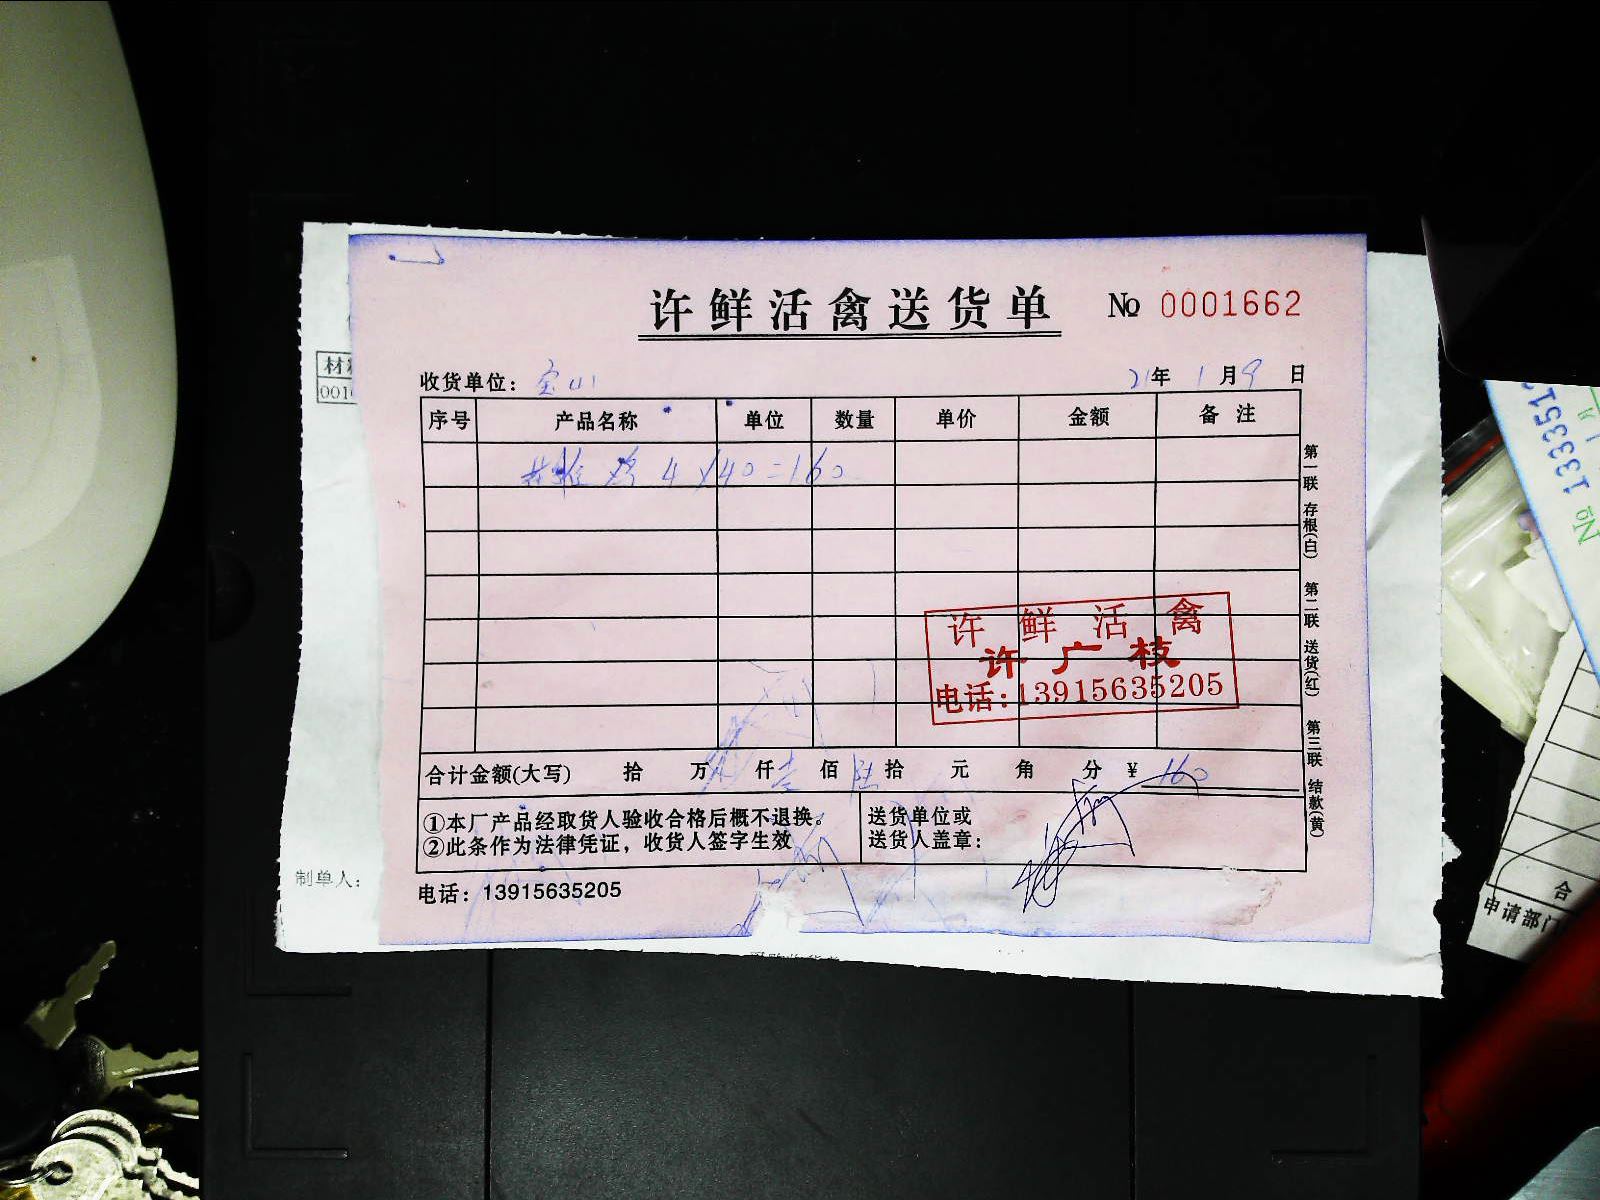 许鲜活禽送货单 № 0001662
收货单位：宝山 21年 1月9日
序号 产品名称 单位 数量 单价 金额 备注
鸡 4×40=160
许鲜活禽
许广枝
电话：13915635205
合计金额(大写) 拾 万 仟壹佰陆拾 元 角 分 ￥160
①本厂产品经取货人验收合格后概不退换。
②此条作为法律凭证，收货人签字生效
送货单位或
送货人盖章：
电话：13915635205
第一联 存根(白)
第二联 送货(红)
第三联 结款(黄)
材料
001
制单人：
№ 1333515
合
申请部门